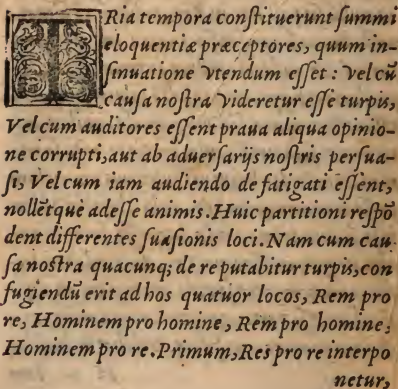 TRia tempora conſtituerunt ſummi
eloquentiæ præceptores, quum in-
ſinuatione vtendum eſſet : vel cũ
cauſa noſtra videretur eſſe turpis,
Vel cum auditores eſſent praua aliqua opinio-
ne corrupti, aut ab aduerſarijs noſtris perſua-
ſi, Vel cum iam audiendo defatigati eſſent,
nollẽtquè adeſſe animis. Huic partitioni reſpõ
dent differentes ſuaſionis loci. Nam cum cau-
ſa noſtra quacunq; de re putabitur turpis, con
fugiendũ erit ad hos quatuor locos, Rem pro
re, Hominem pro homine, Rem pro homine,
Hominem pro re. Primum, Res pro re interpo
netur,